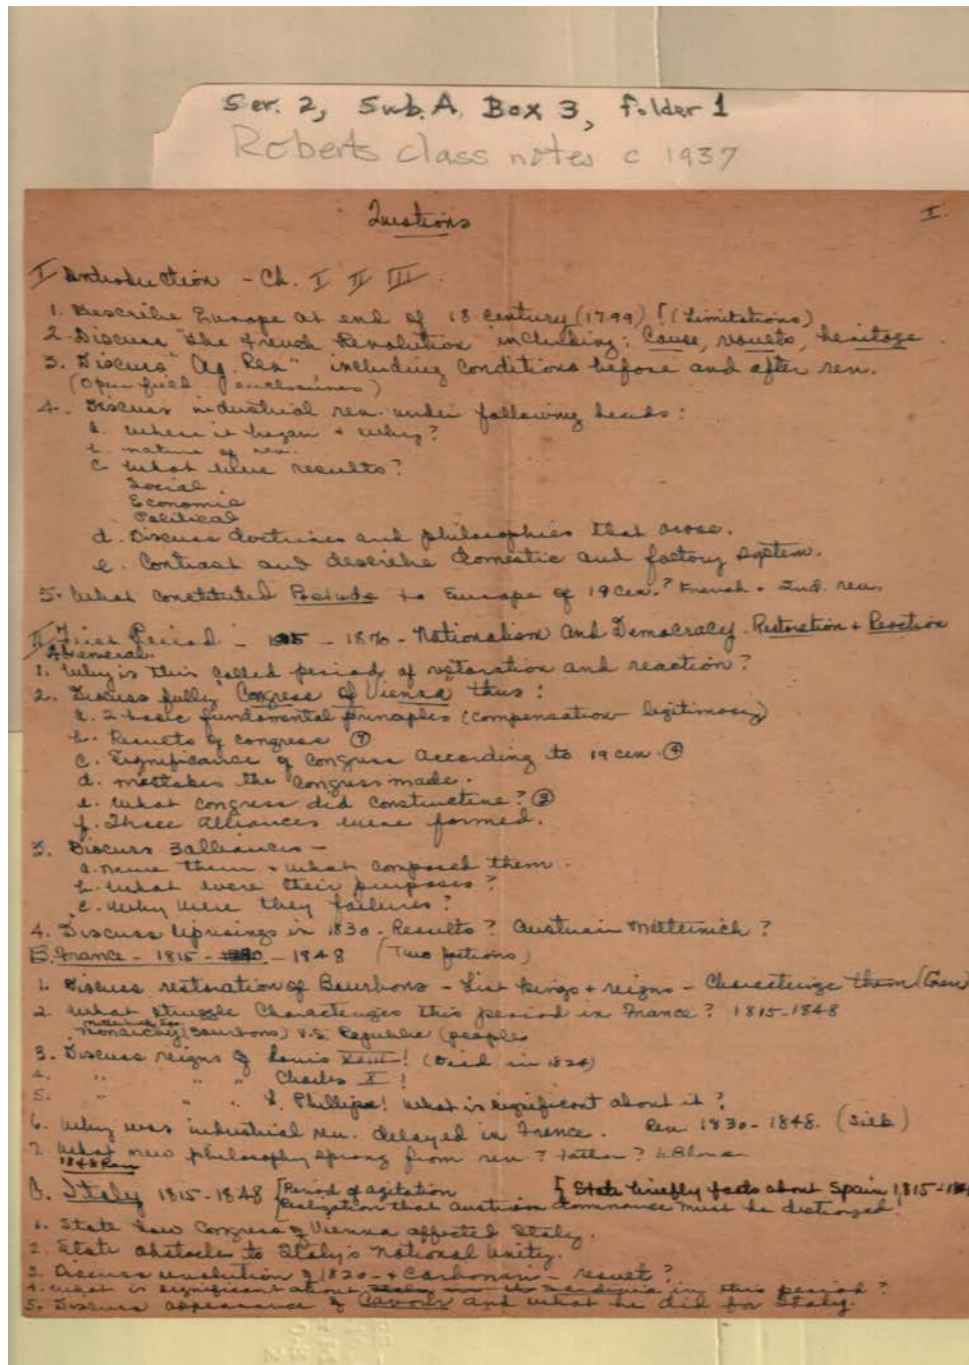 Ser. 2, Sub. A Box 3, folder 1
Roberts class notes c 1937
Questions
I.
I Introduction - Ch. I II III.
1. Describe Europe at end of 18 century (1799) [(Limitations)
2. Discuss "the French Revolution" including: Cause, results, heritage.
3. Discuss "Ag. Rev", including conditions before and after rev.
(Open field enclosures)
4. Discuss industrial rev. under following heads:
a. Where it began + why?
b. nature of rev.
c. What were results?
Social
Economic
Political
d. Discuss doctrines and philosophies that arose.
e. Contrast and describe domestic and factory system.
5. What constituted Prelude to Europe of 19 Cen.? French + Ind. rev.
II. First Period - - 1870 - Nationalism and Democracy. Restoration + Reaction
A General.
1. Why is this called period of restoration and reaction?
2. Discuss fully "Congress of Vienna" thus:
a. 2 basic fundamental principles (compensation - legitimacy)
b. Results of congress
c. Significance of Congress according to 19 cen. (4)
d. mistakes the Congress made.
e. What congress did constructive?
f. Three alliances were formed.
3. Discuss 3 alliances -
a. name them + what composed them.
b. What were their purposes?
c. Why were they failures?
4. Discuss Uprisings in 1830 - Results? Austrian Metternich?
B. France - 1815 - - 1848 (Two factions)
1. Discuss restoration of Bourbons - List kings + reigns - Characterize them (Gen)
2. What struggle Characterizes this period in France? 1815-1848
Monarchy (Bourbons) V.S. Republic (people
3. Discuss reigns of Louis XVIII! (Died in 1824)
4. " " " Charles X!
5. " " " L. Phillipe! What is significant about it?
6. Why was industrial rev. delayed in France. Rev 1830-1848. (Silk)
7. What new philosophy sprang from rev? Father? L. Blanc
1848 Rev
C. Italy 1815-1848 [Period of agitation [State briefly facts about Spain 1815-
Realization that Austrian dominance must be destroyed!
1. State how Congress of Vienna affected Italy.
2. State obstacle to Italy's National Unity.
3. Discuss revolution of 1820 - + Carbonari - result?
4. What is significant about Sardinia in this period?
5. Discuss appearance of Cavour and what he did for Italy.